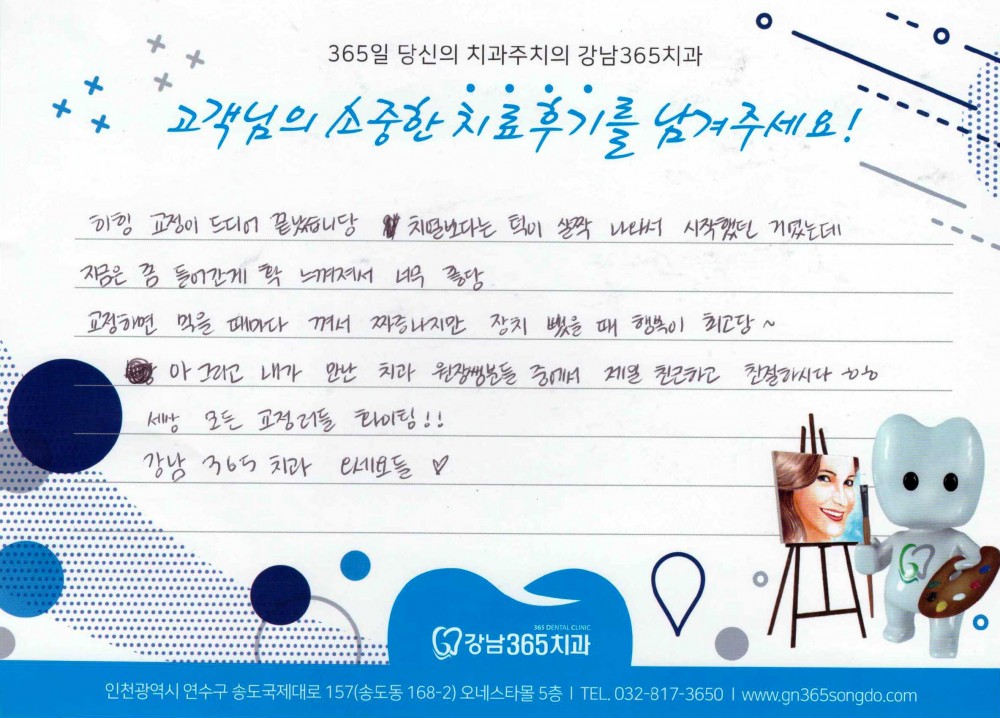 365일 당신의 치과주치의 강남365치과
고객님의 소중한 치료후기를 남겨주세요!
히힝 교정이 드디어 끝났습니당 치열보다는 턱이 살짝 나와서 시작했던 거였는데
지금은 쫌 들어간게 확 느껴져서 너무 좋당
교정하면 먹을 때마다 껴서 짜증나지만 장치 뺐을 때 행복이 최고당~
아 그리고 내가 만난 치과 원장쌤분들 중에서 제일 친근하고 친절하시다 ㅎㅎ
세상 모든 교정러들 화이팅!!
강남 365 치과 오세요들 ♡
365 DENTAL CLINIC
강남365치과
인천광역시 연수구 송도국제대로 157(송도동 168-2) 오네스타몰 5층 | TEL. 032-817-3650 | www.gn365songdo.com